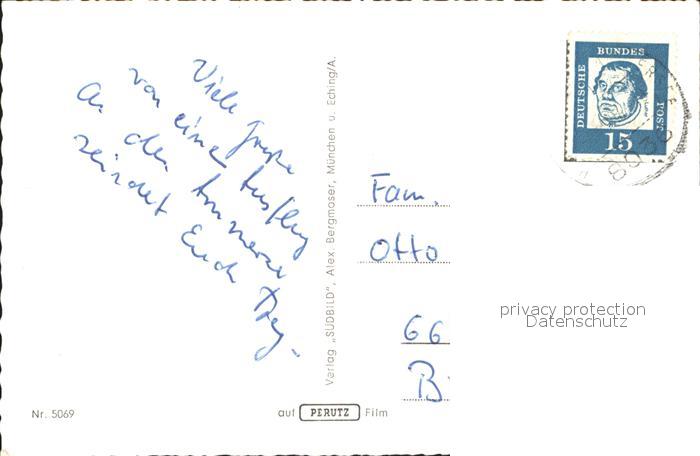 Viele Grüße
von eine Ausflug
an den Ammersee
sendet Euch
Verlag „SÜDBILD", Alex. Bergmoser, München u. Eching/A.
DEUTSCHE
BUNDES
POST
15
Fam.
Otto
66
B
privacy protection
Datenschutz
Nr. 5069
auf PERUTZ Film